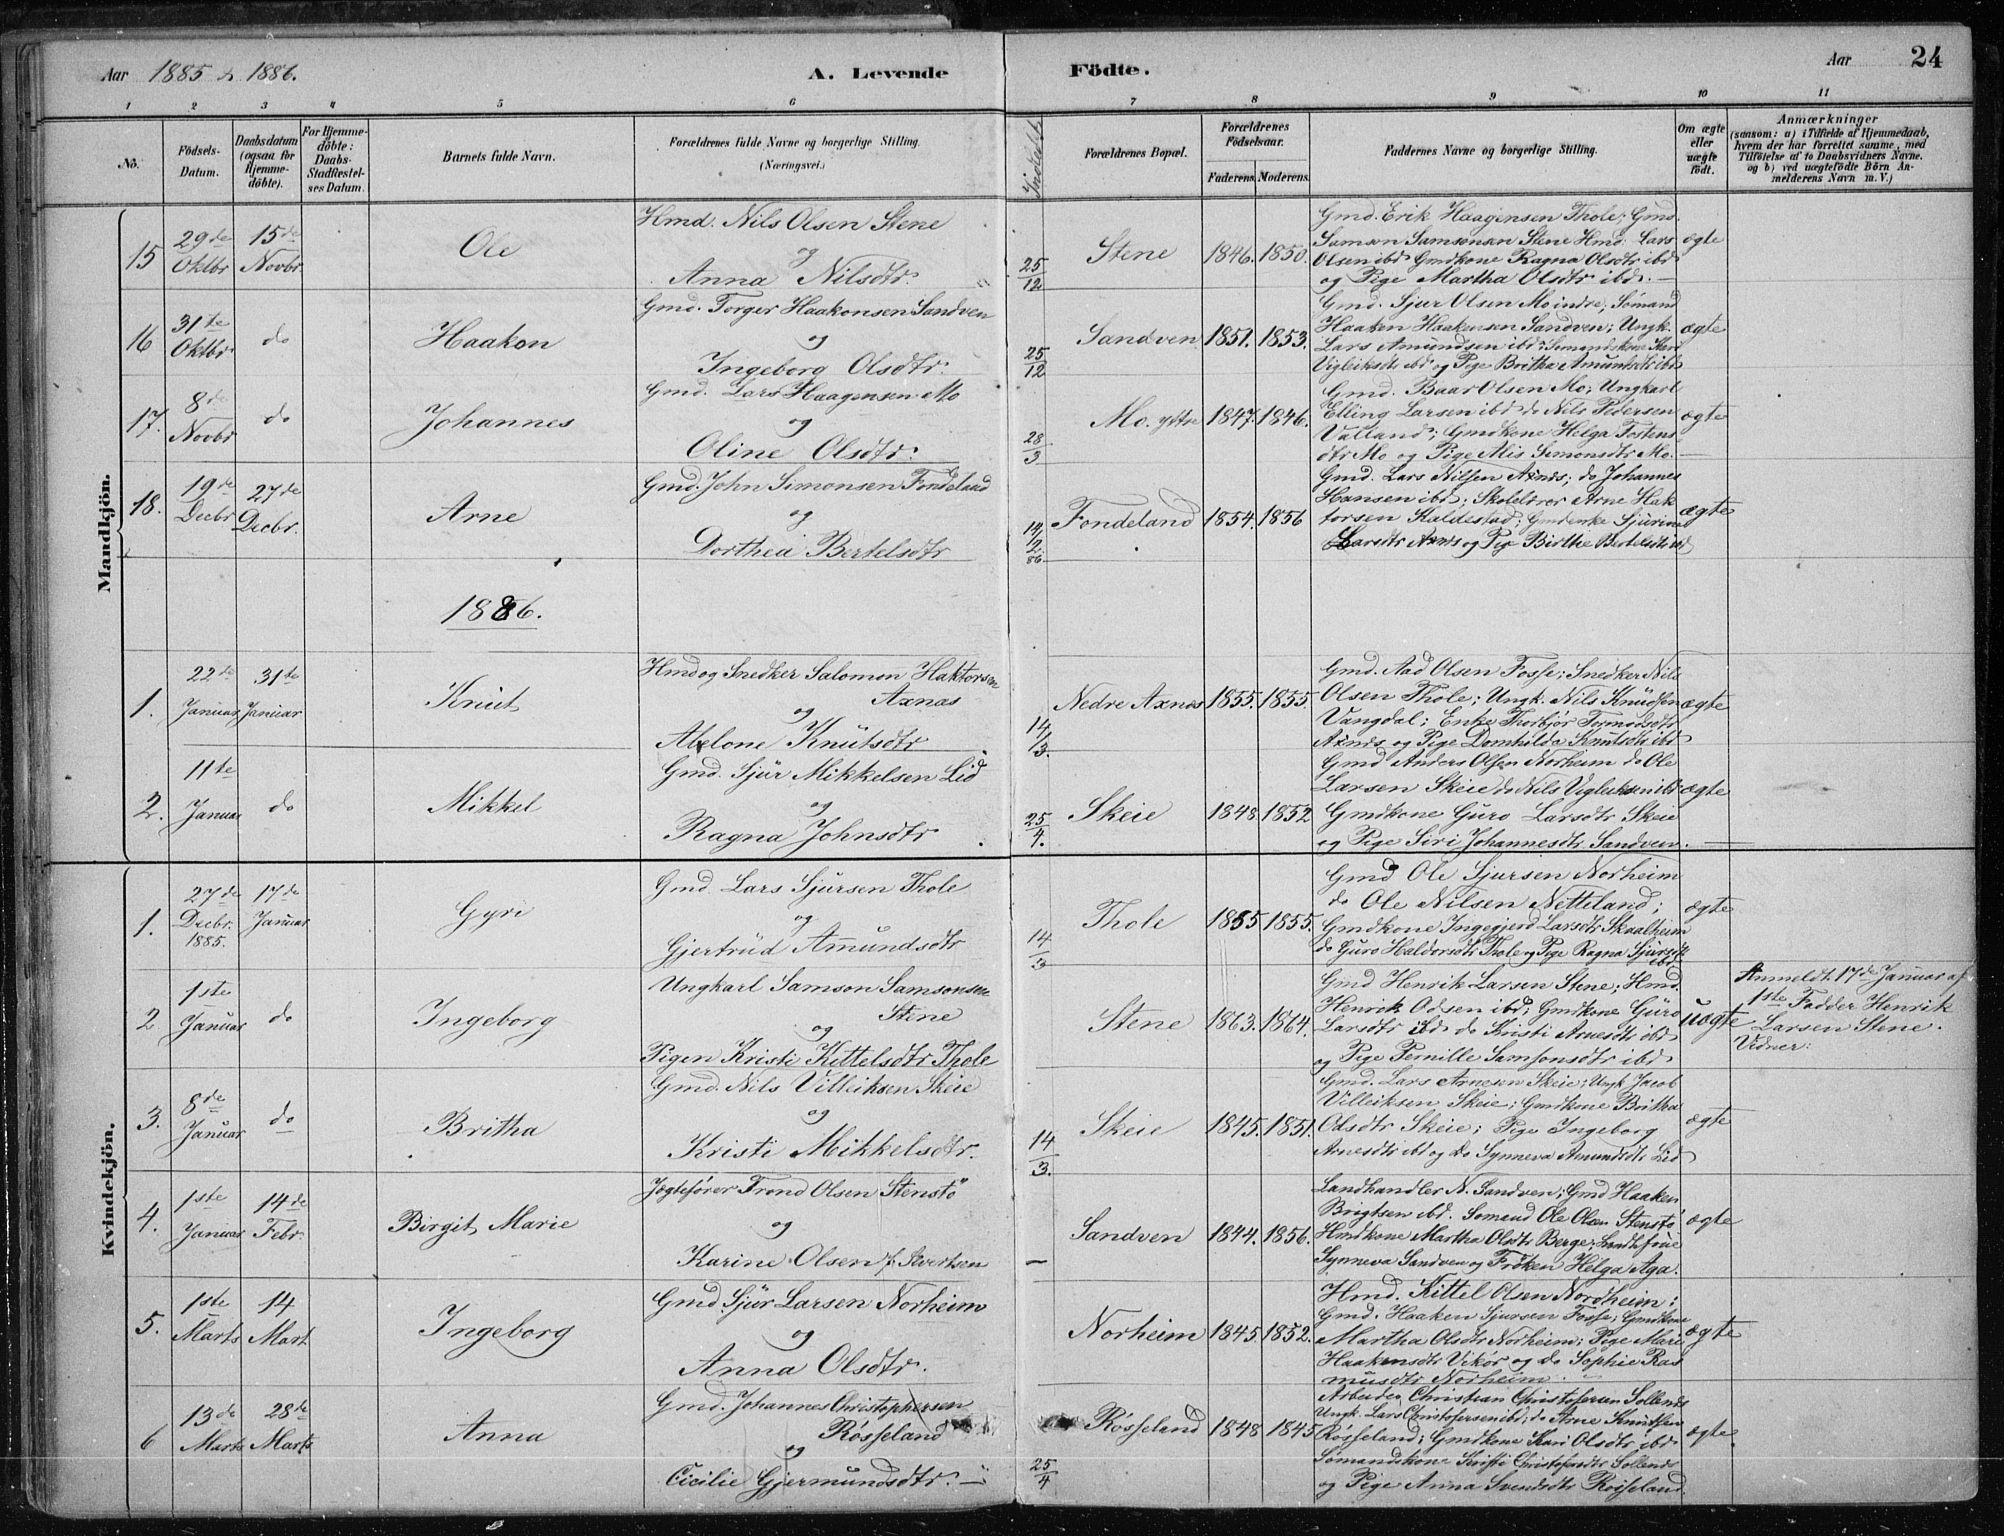 Aar 1885 & 1886.
A. Levende
Födte.
Aar
24
1 2 3 4 5 6 7 8 9 10 11
No.
Födsels-
Datum.
Daabsdatum
(ogsaa for
Hjemme-
döbte).
For Hjemme-
döbte:
Daabs-
Stadfæstel-
ses Datum.
Barnets fulde Navn.
Forældrenes fulde Navne og borgerlige Stilling.
(Næringsvei.)
Forældrenes Bopæl.
Forældrenes
Födselsaar.
Faderens. Moderens.
Faddernes Navne og borgerlige Stilling.
Om ægte
eller
uægte
födt.
Anmærkninger
(saasom: a) i Tilfælde af Hjemmedaab,
hvem der har forrettet samme, med
Tilföielse af to Daabsvidners Navne.
og b) ved uægtefödte Börn An-
melderens Navn m. V.)
Mandkjön.
15
29de
Oktbr
15de
Novbr.
Ole
Hmd. Nils Olsen Stene
og
Anna Nilsdtr.
25/12
Stene
1846. 1850.
Gmd. Erik Haagensen Thole; Gmd.
Samson Samsonsen Stene Hmd. Lars
Olsen ibd Gmdkone Ragna Olsdtr ibd
og Pige Martha Olsdtr ibd.
ægte
16
31te
Oktbr
do
Haakon
Gmd. Torger Haakonsen Sandven
og
Ingeborg Olsdtr.
25/12
Sandven
1851. 1853.
Gmd. Sjur Olsen Mo indre; Sömand
Haaken Haakensen Sandven; Ungk.
Lars Amundsen ibd; Sömandskone
Vigleiksdtr ibd og Pige Britha Amundsdtr ibd
ægte
17.
8de
Novbr
do
Johannes
Gmd. Lars Haagensen Mo
og
Oline Olsdtr.
28/3
Mo. ytre
1847. 1846.
Gmd. Baar Olsen Mo; Ungkarl
Elling Larsen ibd do Nils Pedersen
Valland; Gmdkone Helga Tostens-
dtr Mo og Pige Mis Simonsdtr Mo.
ægte
18.
19de
Decbr
27de
Decbr.
Arne
Gmd. John Simonsen Fondeland
og
Dorthea Bertelsdtr
14/12 86
Fondeland
1854. 1856
Gmd. Lars Nilsen Axnes; do Johannes
Hansen ibd; Skolelærer Arne Hak
torsen Kaldestad; Gmdenke Sjurine
Larsdtr Axnes og Pige Birthe Bertelsdtr ibd
ægte
1886.
1.
22de
Januar
31te
Januar
Knut
Hmd og Snedker Salomon Haktorsen
Axnas
og
Abelone Knutsdtr
14/3.
Nedre Axnes
1855. 1855.
Gmd. Aad Olsen Fosse; Snedker Nils
Olsen Thole; Ungk. Nils Knudsen
Vangdal; Enke Thorbjör Tormodsdtr
Axnes og Pige Domhilda Knutsdtr ibd
ægte
2.
11te
Januar
do
Mikkel
Gmd. Sjur Mikkelsen Lid
og
Ragna Johnsdtr
25/4.
Skeie
1848. 1852
Gmd Anders Olsen Norheim do Ole
Larsen Skeie do Nils Vigleiksen ibd
Gmdkone Guro Larsdtr Skeie
og Pige Siri Johannesdtr Sandven.
ægte
Kvindekjön.
1.
27de
Decbr.
1885.
17de
Januar
Gyri
Gmd. Lars Sjursen Thole
og
Gjertrud Amundsdtr
14/3
Thole
1855 1855.
Gmd Ole Sjursen Norheim
do Ole Nilsen Netteland;
Gmdkone Ingegjerd Larsdtr Skaalheim
do Guro Haldorsdtr Thole og Pige Ragna Sjursdtr
ibd.
ægte
2
1ste
Januar
do
Ingeborg
Ungkarl Samson Samsonsen
Stene
og
Pigen Kristi Kittelsdtr Thole
Stene
1863. 1864.
Gmd Henrik Larsen Stene; Hmd.
Henrik Odsen ibd; Gmdkone Guro
Larsdtr ibd do Kristi Arnesdtr ibd
og Pige Pernille Samsonsdtr ibd
uægte
Anmeldt 17de Januar af
1ste Fadder Henrik
Larsen Stene.
Vidner:
3.
8de
Januar
do
Britha
Gmd. Nils Villeiksen Skeie
og
Kristi Mikkelsdtr.
14/3.
Skeie
1845. 1851.
Gmd. Lars Arnesen Skeie; Ungk Jacob
Villeiksen Skeie; Gmdkone Britha
Olsdtr Skeie; Pige Ingeborg
Arnesdtr ibd og do Synneva Amundsdtr Lid
ægte
4.
1ste
Januar
14de
Febr.
Birgit Marie
Jægtefører Trond Olsen Stenstö
og
Karine Olsen f. Sivertsen
—
Sandven
1844. 1856.
Landhandler N. Sandven; Gmd Haaken
Brigtsen ibd. Sömand Ole Olsen Stenstö
Hmdkone Martha Olsdtr Berge;
Synneva Sandven og Fröken Helga Aga.
ægte
5.
1ste
Marts
14
Mart
Ingeborg
Gmd. Sjür Larsen Norheim
og
Anna Olsdtr.
Norheim
1845. 1852.
Hmd. Kittel Olsen Nordheim;
Gmd. Haaken Sjursen Fosse; Gmdkone
Martha Olsdtr Norheim; Pige Mari
Haakensdtr Vikör og do Sophie Ras
musdtr Norheim
ægte
6
13de
Marts
28de
Marts
Anna
Gmd. Johannes Christophersen
Røsseland
og
Cicilie Gjermundsdtr.
25/4
Røsseland
1848 1845
Arbeider Christian Christofersen Sollends
Ungk. Lars Christofersen ibd; do Arne Knutsen
Røsseland; Gmdkone Kari Olsdtr ibd
Sömandskone Kristi Christofersdtr Sollends
og Pige Anna Svendsdtr Røsseland
ægte